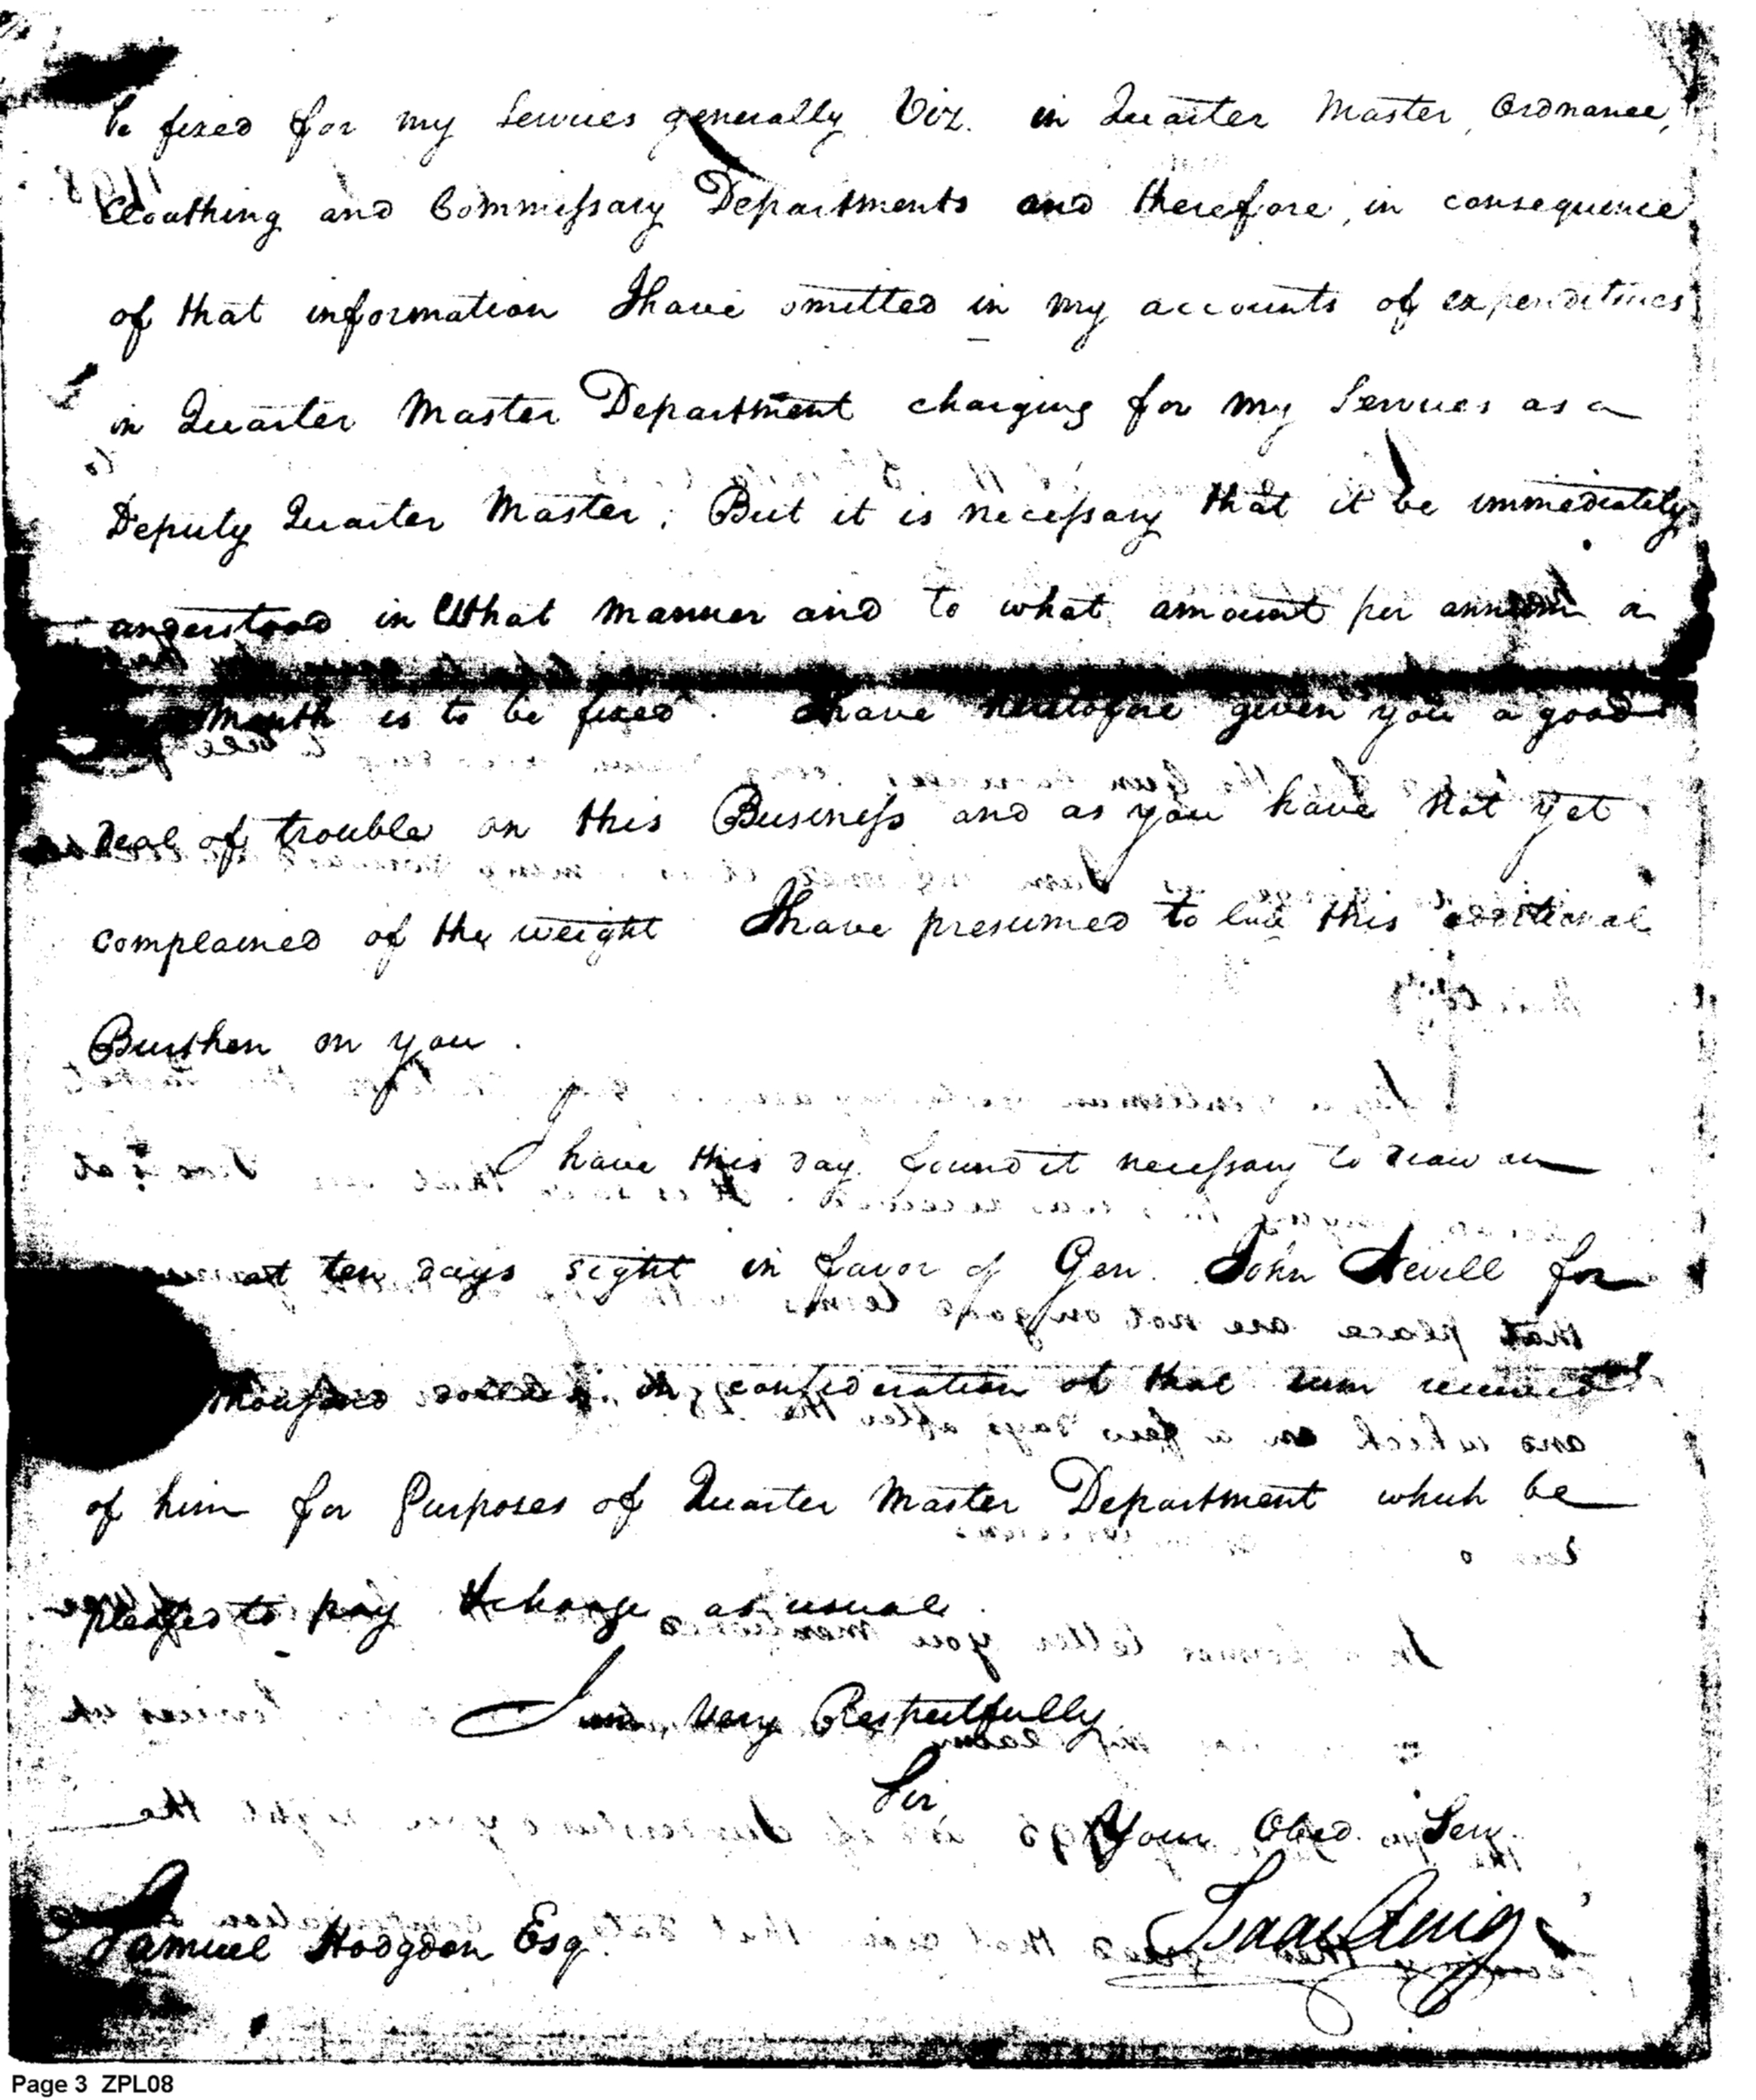 be fixed for my Services generally Viz. in Quarter Master, Ordnance,
Cloathing and Commissary Departments and therefore, in consequence
of that information I have omitted in my accounts of expenditures
in Quarter Master Department charging for my Services as a
Deputy Quarter Master. But it is necessary that it be immediately
understood in What manner and to what amount per annum or
month is to be fixed. I have heretofore given you a good
Deal of trouble on this Business and as you have not yet
complained of the weight I have presumed to this additional
Burthen on you.
I have this day found it necessary to draw on
at ten days sight in favor of Gen. John Nevill for
thousand dollars in consideration of that sum received
of him for Purposes of Quarter Master Department which be
pleased to pay & charge as usual.
I am very Respectfully
Sir
Your Obed. Serv.
Isaac Craig
Samuel Hodgdon Esq
Page 3 ZPL08